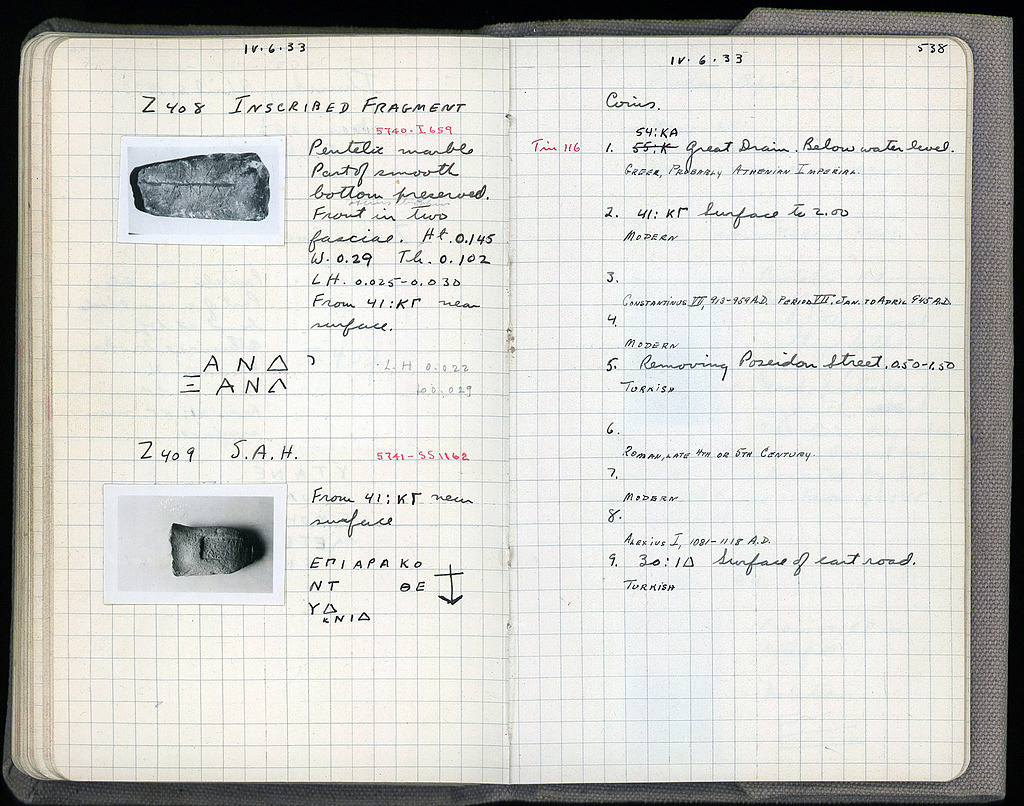 IV·6·33
Z 408 INSCRIBED FRAGMENT
5740-I 659
Pentelic marble
Part of smooth
bottom preserved.
Front in two
fasciae. Ht. 0.145
W. 0.29 Th. 0.102
LH. 0.025-0.030
From 41:ΚΓ near
surface.
ΑΝΔ
ΞΑΝΛ
L.H 0.022
0.029
Z 409 S.A.H.
5741-SS1162
From 41:ΚΓ near
surface
ΕΠΙΑΡΑΚΟ
ΝΤ ΘΕ
ΥΔ
ΚΝΙΔ
IV·6·33
538
Coins.
54:ΚΑ
Tin 116 1. 55:Κ Great Drain. Below water level.
GREEK, PROBABLY ATHENIAN IMPERIAL.
2. 41:ΚΓ Surface to 2.00
MODERN
3.
CONSTANTINUS VII, 913-959 A.D. PERIOD VII. JAN. TO APRIL 945 A.D.
4.
MODERN
5. Removing Poseidon Street. 0.50-1.50
TURKISH
6.
ROMAN, LATE 4TH OR 5TH CENTURY.
7.
MODERN
8.
ALEXIUS I, 1081-1118 A.D.
9. 30:ΙΔ Surface of east road.
TURKISH